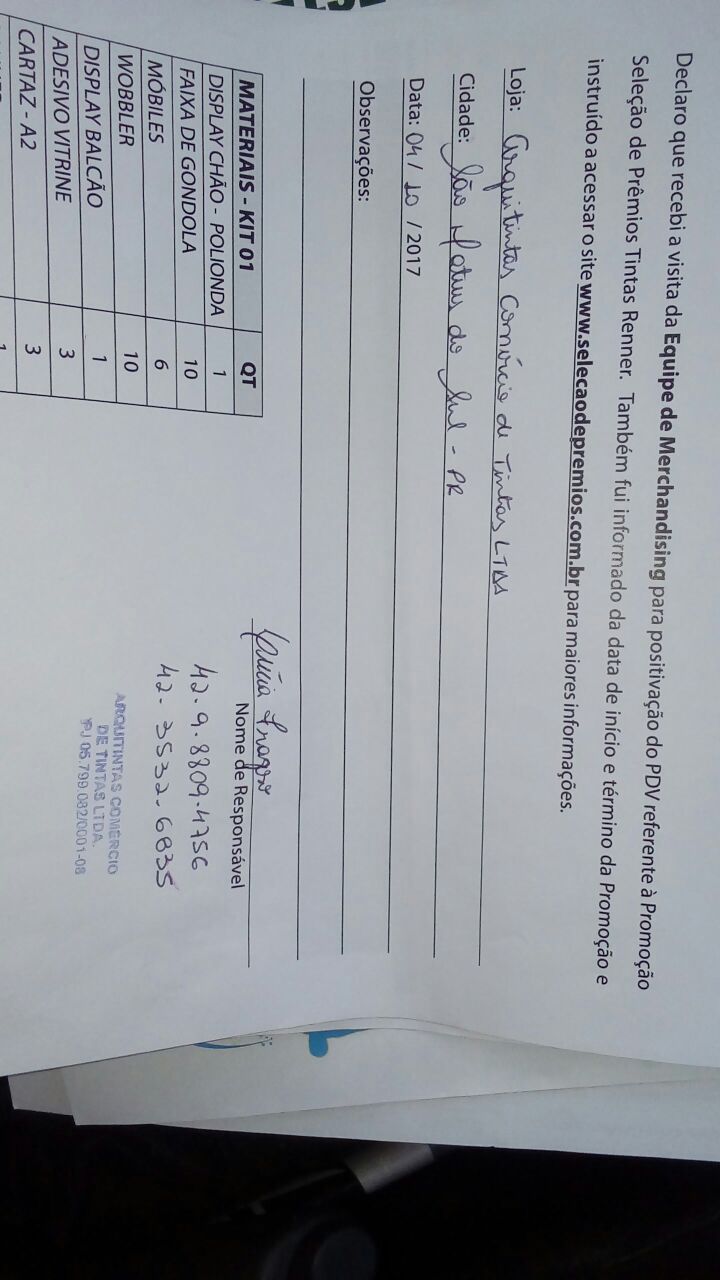 Declaro que recebi a visita da Equipe de Merchandising para positivação do PDV referente à Promoção
Seleção de Prêmios Tintas Renner. Também fui informado da data de início e término da Promoção e
instruído a acessar o site www.selecaodepremios.com.br para maiores informações.
Loja: Arquitintas Comércio de Tintas LTDA
Cidade: São Mateus do Sul - PR
Data: 04/10/2017
Observações:
MATERIAIS - KIT 01 QT
DISPLAY CHÃO - POLIONDA 1
FAIXA DE GONDOLA 10
MÓBILES 6
WOBBLER 10
DISPLAY BALCÃO 1
ADESIVO VITRINE 3
CARTAZ - A2 3
1
Nome de Responsável
42.9.8809.4756
42.3532.6835
ARQUITINTAS COMÉRCIO
DE TINTAS LTDA.
PJ 05.799.082/0001-08